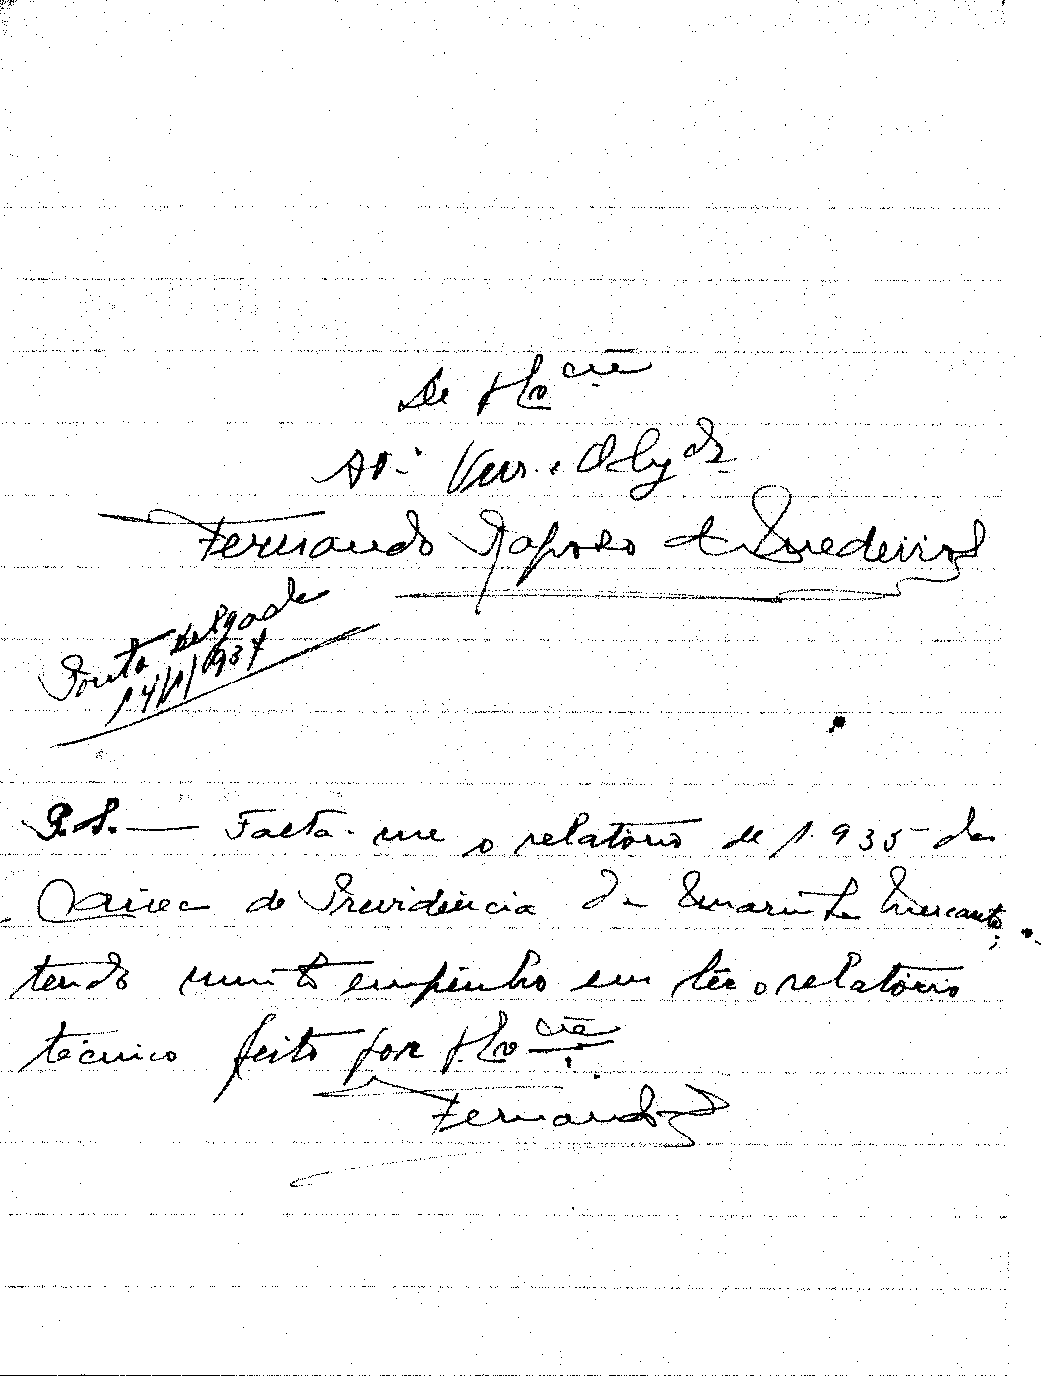 De V. Ex.cia
At.º Ven. e Obg.do
Fernando Raposo de Medeiros
Ponta Delgada
14/1/937
P.S. — Falta-me o relatório de 1.935 da
Caixa de Previdência da Marinha Mercante,
tendo muito empenho em ler o relatório
técnico feito por V. Ex.cia
Fernando